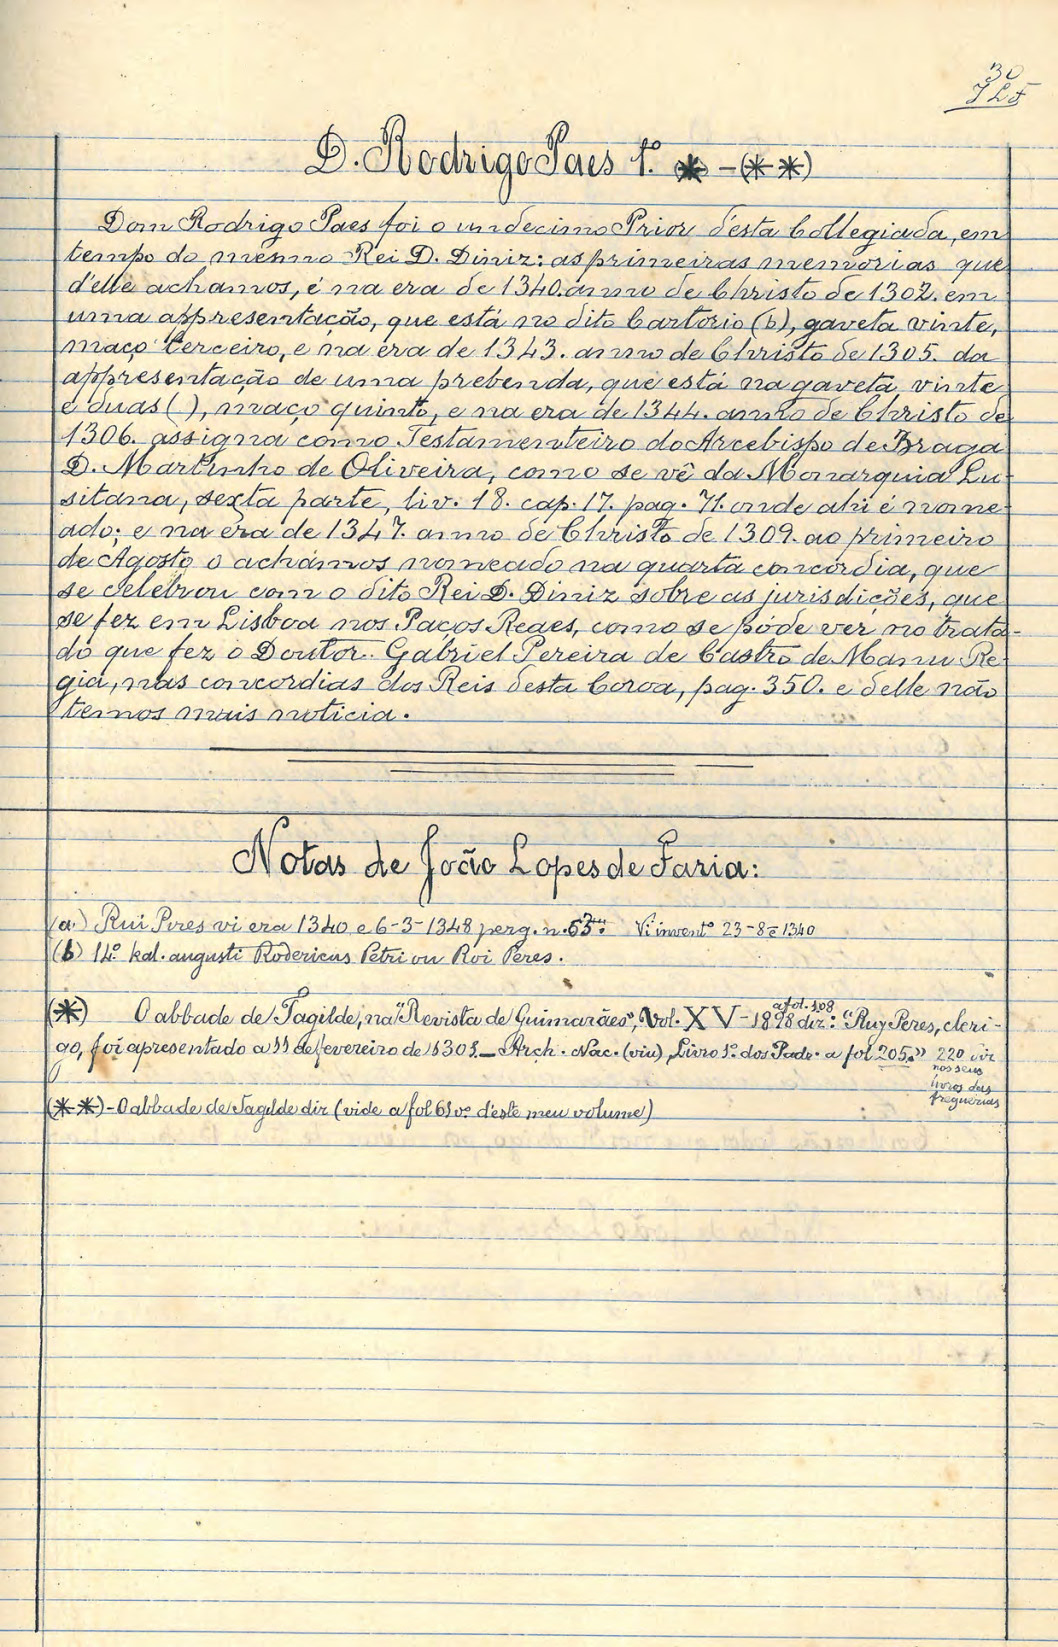 30
JLF
D. Rodrigo Paes 1.º * - (**)
Dom Rodrigo Paes foi o undecimo Prior d'esta Collegiada, em
tempo do mesmo Rei D. Diniz: as primeiras memorias que
d'elle achamos, é na era de 1340. anno de Christo de 1302. em
uma appresentação, que está no dito Cartorio (b), gaveta vinte,
maço terceiro, e na era de 1343. anno de Christo de 1305. da
appresentação de uma prebenda, que está na gaveta vinte
e duas ( ), maço quinto, e na era de 1344. anno de Christo de
1306. assigna como Testamenteiro do Arcebispo de Braga
D. Martinho de Oliveira, como se vê da Monarquia Lu-
sitana, sexta parte, liv. 18. cap. 17. pag. 71. onde ahi é nome-
ado; e na era de 1347. anno de Christo de 1309. ao primeiro
de Agosto o achámos nomeado na quarta concordia, que
se celebrou com o dito Rei D. Diniz sobre as jurisdições, que
se fez em Lisboa nos Paços Reaes, como se póde ver no trata-
do que fez o Doutor Gabriel Pereira de Castro de Manu Re-
gia, nas concordias dos Reis desta Coroa, pag. 350. e delle não
temos mais noticia.
Notas de João Lopes de Faria:
(a) Rui Peres vi era 1340 e 6-3-1348 perg. n. 53 Vi invent.º 23-8-1340
(b) 14.º kal. augusti Rodericus Petri ou Roi Peres.
a fol. 108
(*) O abbade de Tagilde, na "Revista de Guimarães", Vol. XV-1898 diz: "Ruy Peres, cleri-
go, foi apresentado a 11 de fevereiro de 1301_ Arch. Nac. (viu), Livro 1.º dos Pade. a fol 205." 220 diz
nos seus
livros das
freguezias
(**) - O abbade de Tagilde diz (vide a fol 61 v.º d'este meu volume)